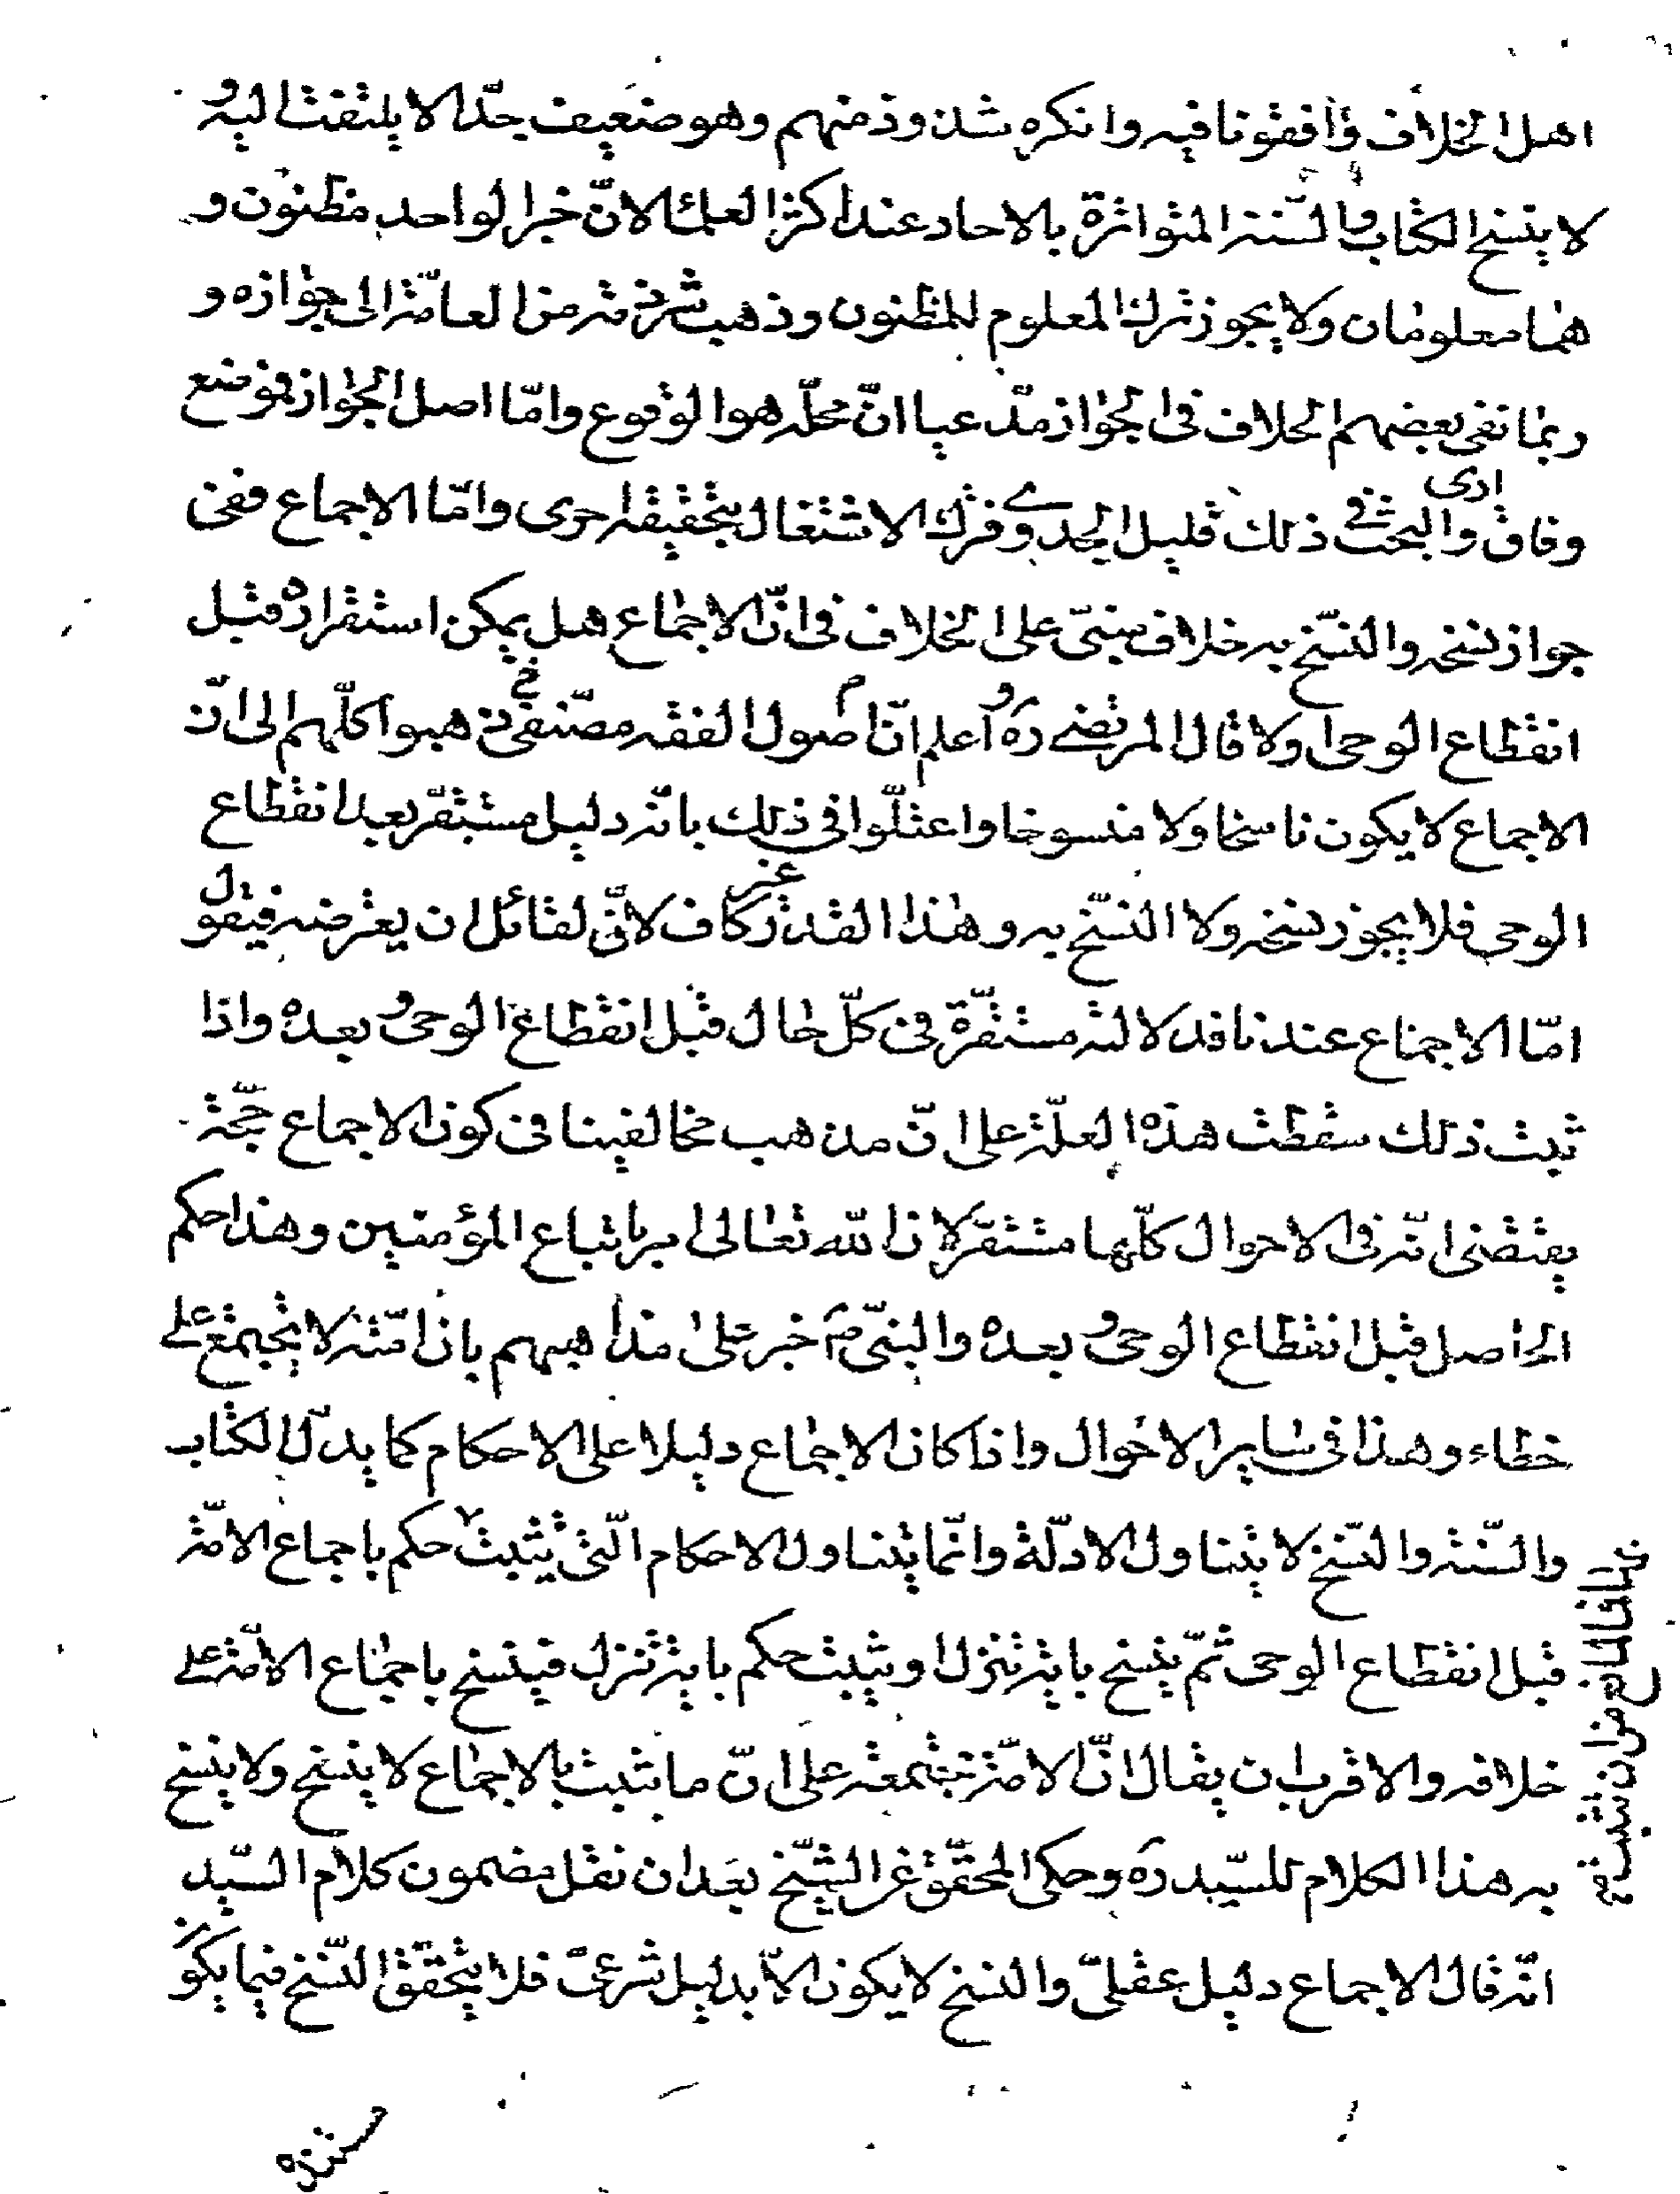 اهل الخلاف وافقونا فيه وانكره شذوذ منهم وهو ضعيف جدّا لا يلتفت اليه و
لا ينسخ الكتاب والسّنة المتواترة بالاحاد عند اكثر العلماء لانّ خبر الواحد مظنون و
هما معلومان ولا يجوز ترك المعلوم للمظنون وذهب شرذمة من العامّة الى جوازه و
ربما نفى بعضهم الخلاف فى الجواز مدّعيا انّ محلّه هو الوقوع وامّا اصل الجواز فموضع
وفاق وارى البحث فى ذلك قليل الجدوى فترك الاشتغال بتحقيقه احرى وامّا الاجماع ففى
جواز نسخه والنسّخ به خلاف مبنىّ على الخلاف فى انّ الاجماع هل يمكن استقراره قبل
انقطاع الوحى او لا قال المرتضى ره و اعلم انّ مصنفى اصول الفقه ذهبوا كلّهم الى انّ
الاجماع لا يكون ناسخا ولا منسوخا واعتلّوا فى ذلك بانّه دليل مستقرّ بعد انقطاع
الوحى فلا يجوز نسخه ولا النسّخ به وهذا القدر غير كاف لانّ لقائل ان يعترضه فيقول
امّا الاجماع عندنا فدلالته مستقرّة فى كلّ حال قبل انقطاع الوحى و بعده واذا
ثبت ذلك سقطت هذه العلّة على انّ مذهب مخالفينا فى كون الاجماع حجّة
يقتضى انّه فى الاحوال كلّها مستقرّ لان الله تعالى امر باتباع المؤمنين وهذا حكم
الحاصل قبل انقطاع الوحى و بعده والنبىّ ص اخبر على مذاهبهم بان امّته لا تجتمع على
خطاء وهذا فى ساير الاحوال واذا كان الاجماع دليلا على الاحكام كما يدلّ الكتاب
والسّنة والنسّخ لا يتناول الادلّة وانّما يتناول الاحكام الّتى يثبت حكم باجماع الامّة
قبل انقطاع الوحى ثمّ ينسخ باية تنزل او يثبت حكم باية تنزل فينسخ باجماع الامّة على
خلافه والاقرب ان يقال انّ الامّة مجتمعة على انّ ما يثبت بالاجماع لا ينسخ ولا ينسخ
به هذا الكلام للسيّد ره وحكى المحقّق عن الشيّخ بعد ان نقل مضمون كلام السيّد
انّه قال الاجماع دليل عقلىّ والنسخ لا يكون الّا بدليل شرعىّ فلا يتحقّق النسّخ فيما يكون
بها فما المانع من ان يثبت